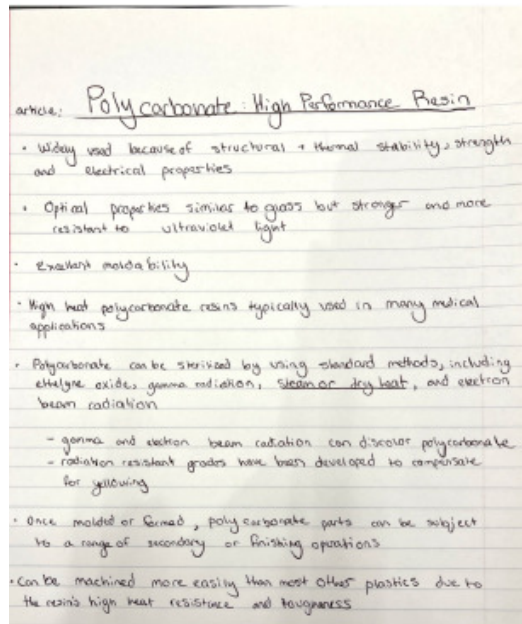 article: Polycarbonate: High Performance Resin
• Widely used because of structural + thermal stability, strength
and electrical properties
• Optical properties similar to glass but stronger and more
resistant to ultraviolet light
• Excellant moldability
• High heat polycarbonate resins typically used in many medical
applications
• Polycarbonate can be sterilized by using standard methods, including
ethelyne oxide, gamma radiation, steam or dry heat, and electron
beam radiation
- gamma and electron beam radiation can discolor polycarbonate
- radiation resistant grades have been developed to compensate
for yellowing
• Once molded or formed, polycarbonate parts can be subject
to a range of secondary or finishing operations
• Can be machined more easily than most other plastics due to
the resin's high heat resistance and toughness